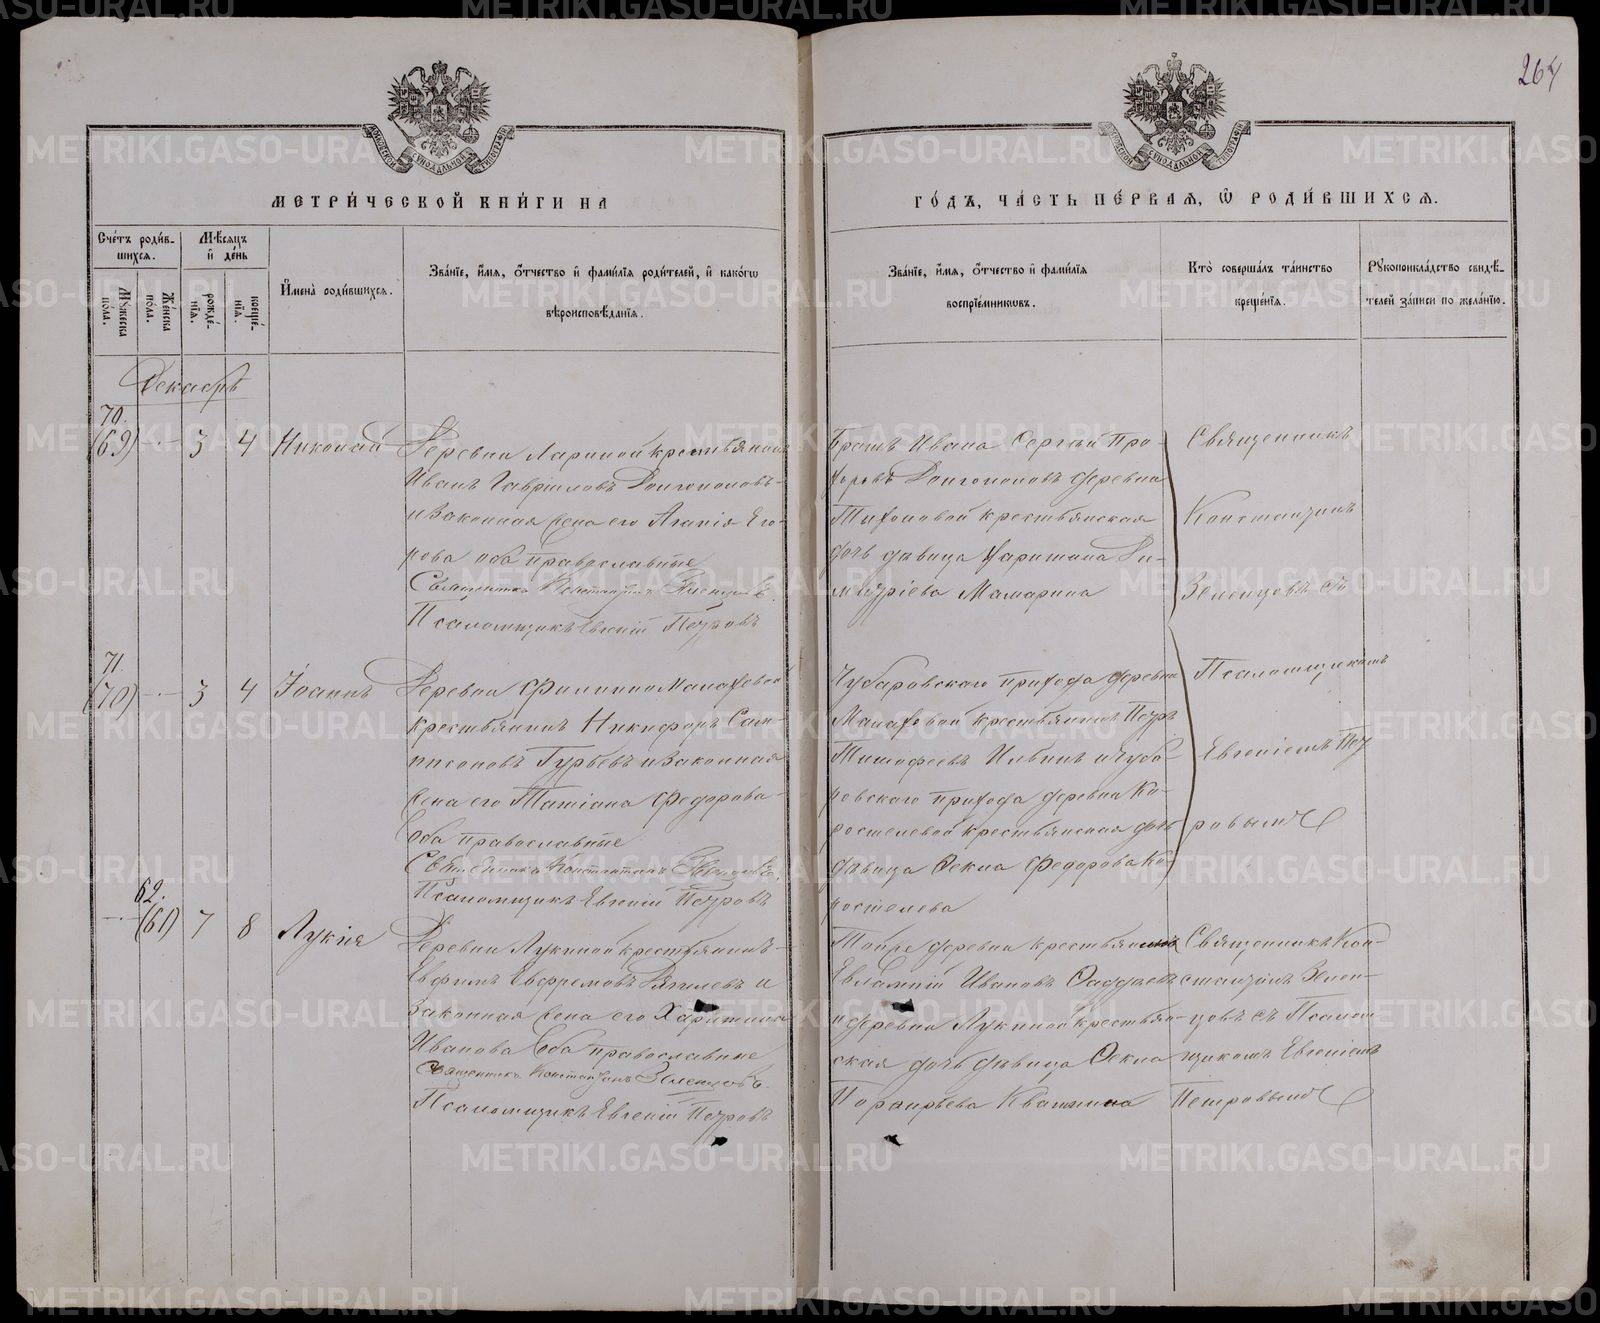 264
МЕТРИ́ЧЕСКОЙ КНИ́ГИ НА
ГО́ДЪ, ЧА́СТЬ ПЕ́РВАЯ, Ѡ РОДИ́ВШИХСЯ.
Сче́тъ роди́в-
шихся.
Му́жеска по́ла.
Же́нска по́ла.
Мѣ́сяцъ
и҆ де́нь
рожде́-
нїя.
креще́-
нїя.
И҆мена̀ роди́вшихся.
Зва́нїе, и҆́мя, ѻ҆́тчество и҆ фами́лїя роди́телей, и҆ како́гѡ
вѣроисповѣ́данїя.
Зва́нїе, и҆́мя, ѻ҆́тчество и҆ фами́лїя
воспрїе́мникѡвъ.
Кто̀ соверша́лъ та́инство
креще́нїя.
Рꙋкоприкла́дство свидѣ́-
телей за́писи по жела́нїю.
Декабрь
70.
(69) 3 4 Николай
Деревни Лариной крестьянинъ
Иванъ Гавріиловъ Долгополовъ
и законная жена его Агапія Его-
рова оба православные
Священникъ Константинъ Зеленцовъ.
Псаломщикъ Евгеній Петровъ
Братъ Ивана Сергѣй Про-
хоровъ Долгополовъ деревни
Тихоновой крестьянская
дочь дѣвица Харитина Ди-
митріева Мамарина
Священникъ
Константинъ
Зеленцовъ съ
71.
(70) 3 4 Іоаннъ
Деревни Филиппо Малаховой
крестьянинъ Никифоръ Сам-
псоновъ Гурьевъ и законная
жена его Татіана Федорова
Оба православные
Священникъ Константинъ Зеленцовъ.
Псаломщикъ Евгеній Петровъ
Чубаровскаго прихода деревни
Малаховой крестьянинъ Петръ
Тимофеевъ Ильинъ и Чуба-
ровскаго прихода деревни Ко-
ростелевой крестьянская дочь
дѣвица Ѳекла Федорова Ко-
ростелева
Псаломщикомъ
Евгеніемъ Пет
ровымъ
62.
(61) 7 8 Лукія
Деревни Лукиной крестьянинъ
Евфимъ Евфремовъ Вягилевъ и
законная жена его Харитина
Иванова Оба православные
Священникъ Константинъ Зеленцовъ.
Псаломщикъ Евгеній Петровъ
Тойже деревни крестьянинъ
Евлампій Ивановъ Ѳаддѣевъ
и деревни Лукиной крестьян-
ская дочь дѣвица Ѳекла
Порфирьева Квашнина
Священникъ Кон-
стантинъ Зелен-
цовъ съ Псалом-
щикомъ Евгеніемъ
Петровымъ
METRIKI.GASO-URAL.RU